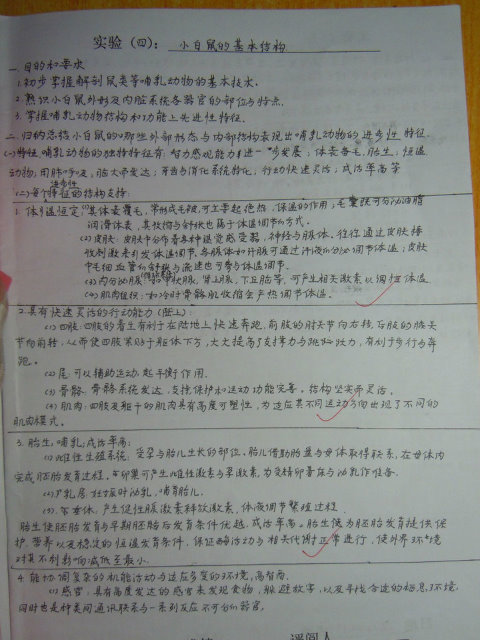 实验(四): 小白鼠的基本结构
一.目的和要求
1.初步掌握解剖鼠类等哺乳动物的基本技术.
2.熟识小白鼠外形及内脏系统各器官的部位与特点.
3.掌握哺乳动物结构和功能上先进性特征.
二.归纳总结小白鼠的哪些外部形态与内部结构表现出哺乳动物的进步性特征.
(一)特征.哺乳动物的独特特征有:智力感观能力进一步发展;体表备毛,胎生;恒温
动物;用肺呼吸,脑大而发达;牙齿分化系统特化;行动快速灵活;成活率高等
进步性
(二)各个特征的结构支持:
1.体温恒定:(1)其体表覆毛,常形成毛被,可主要起绝热、保温的作用;毛囊腺可分泌油脂
润滑体表,其收缩与舒张也属于体温调节的方式.
(2)皮肤:皮肤中分布着各种温觉感受器,神经与腺体.往往通过皮肤接
收刺激来引发体温调节,各腺体如汗腺可通过汗液的分泌调节体温;皮肤
中毛细血管的舒张与流速也可参与体温调节.
(3)内分泌腺:如甲状腺、肾上腺、下丘脑等,可产生相关激素以调控体温.
(4)肌肉组织:如冷时骨骼肌收缩会产热调节体温.
2.具有快速灵活的行动能力(陆上):
(1)四肢:四肢的着生有利于在陆地上快速奔跑,前肢的肘关节向后转,后肢的膝关
节向前转,从而使四肢紧贴于躯体下方,大大提高了支撑力与跳跃力,有利于步行与奔
跑.
(2)尾:可以辅助运动,起平衡作用.
(3)骨骼:骨骼系统发达,支持、保护和运动功能完善.结构坚实而灵活.
(4)肌肉:四肢及躯干的肌肉具有高度可塑性,为适应其不同运动方向出现了不同的
肌肉模式.
3.胎生,哺乳,成活率高:
(1)雌性生殖系统:受孕与胎儿生长的部位.胎儿借助胎盘与母体取得联系,在母体内
完成胚胎发育过程.与卵巢可产生雌性激素与孕激素,为受精卵着床与泌乳作准备.
(2)乳房:妊娠时泌乳,哺育胎儿.
(3).脑垂体:产生促性腺激素释放激素,体液调节繁殖过程.
胎生使胚胎发育与早期胚胎后发育条件优越,成活率高.胎生使为胚胎发育提供保
护、营养以及稳定的恒温发育条件,保证酶活动与相关代谢正常进行,使外界环境
对其不利影响减低至最小.
4.能协调复杂的机能活动与适应多变的环境,高智商.
(1)感官:具有高度发达的感官来发现食物,躲避敌害,以及寻找合适的栖息环境.
同时也是种类间通讯联系与一系列反应不可分的器官.
评阅人